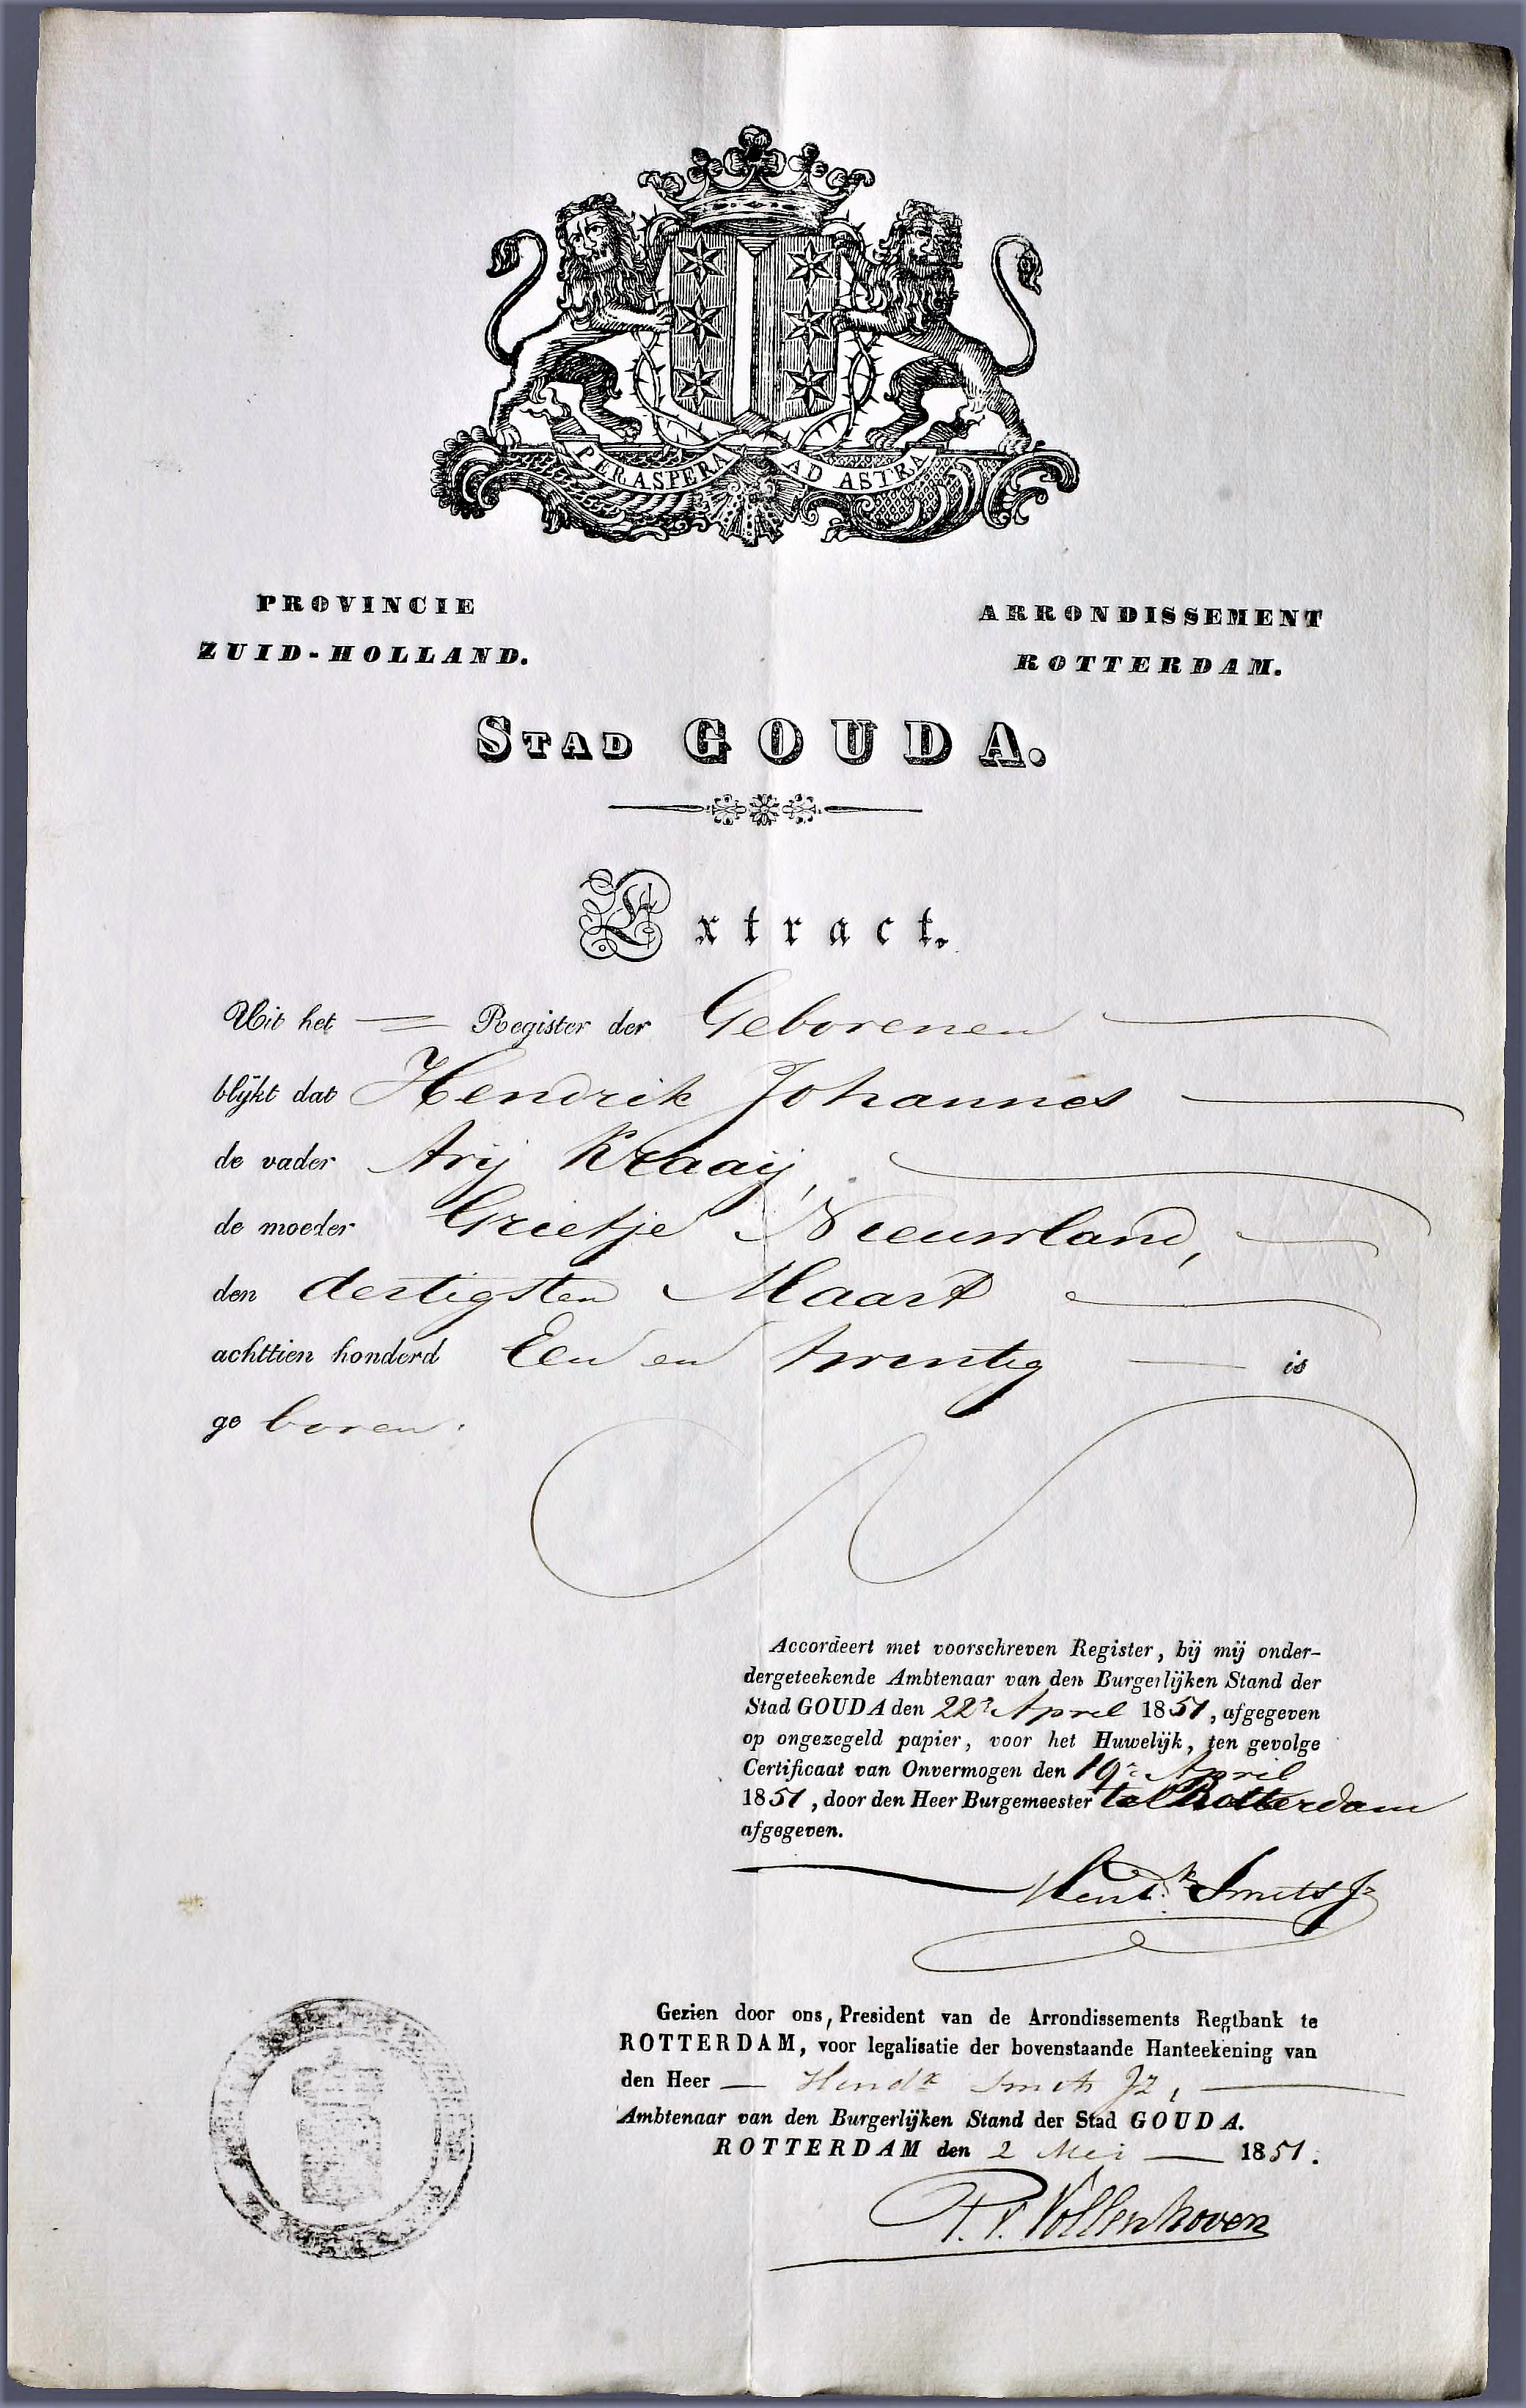 PER ASPERA AD ASTRA
PROVINCIE
ZUID-HOLLAND.
ARRONDISSEMENT
ROTTERDAM.
STAD GOUDA.
Extract.
Uit het Register der Geborenen
blijkt dat Hendrik Johannes
de vader Arij Kraaij,
de moeder Grietje Nieuwland,
den dertigsten Maart
achttien honderd Een en twintig is
ge boren.
Accordeert met voorschreven Register, bij mij onder-
dergeteekende Ambtenaar van den Burgerlijken Stand der
Stad GOUDA den 22e April 1851, afgegeven
op ongezegeld papier, voor het Huwelijk, ten gevolge
Certificaat van Onvermogen den 19e April
1851, door den Heer Burgemeester te Rotterdam
afgegeven.
Hendk Smits Jz
Gezien door ons, President van de Arrondissements Regtbank te
ROTTERDAM, voor legalisatie der bovenstaande Hanteekening van
den Heer Hendk Smits Jz,
Ambtenaar van den Burgerlijken Stand der Stad GOUDA.
ROTTERDAM den 2 Mei 1851.
P. v. Vollenhoven